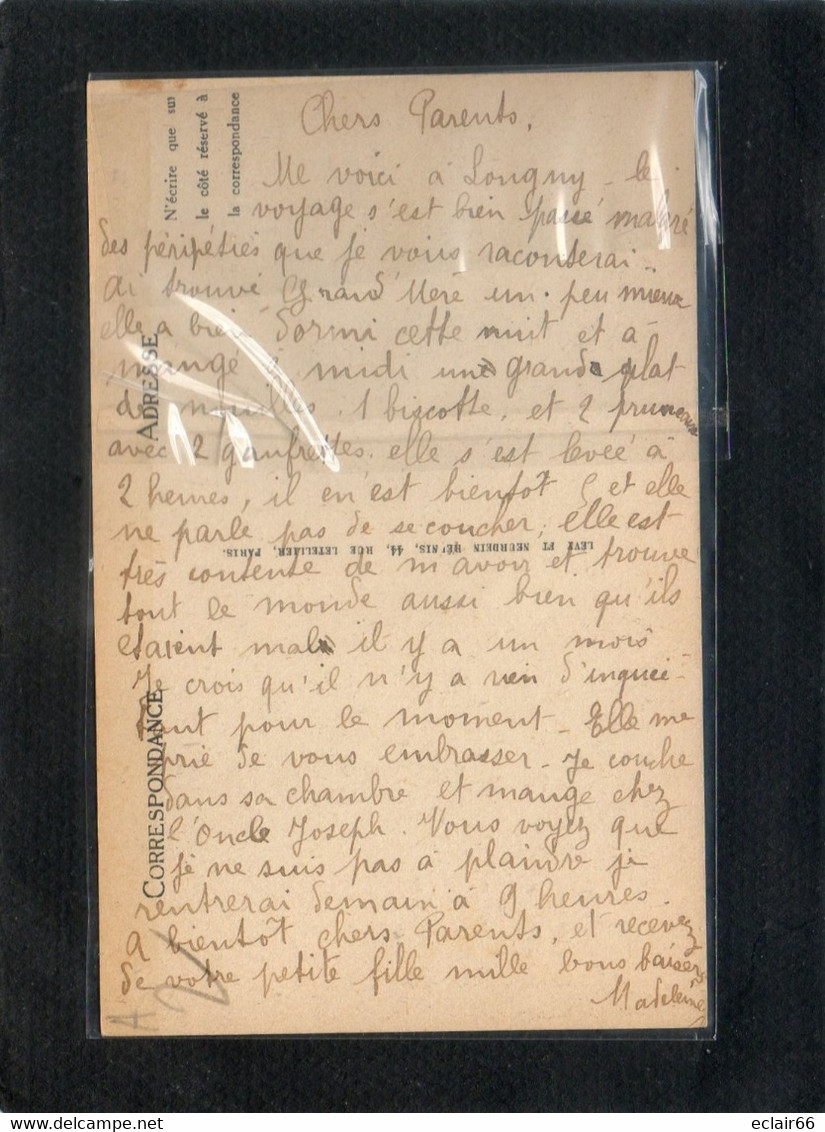 N'écrire que sur
le côté réservé à
la correspondance
Chers Parents,
Me voici à Longny - le
voyage s'est bien passé malgré
des péripéties que je vous raconterai -
ai trouvé Grand'Mère un peu mieux
elle a bien dormi cette nuit et a
mangé à midi un grand plat
de nouilles. 1 biscotte, et 2 pruneaux
avec 2 gaufrettes. elle s'est levée à
2 heures, il en'est bientôt 5 et elle
ne parle pas de se coucher, elle est
très contente de m'avoir et trouve
tout le monde aussi bien qu'ils
etaient mal il y a un mois
Je crois qu'il n'y a rien d'inquié-
tant pour le moment - Elle me
prie de vous embrasser - Je couche
dans sa chambre et mange chez
l'Oncle Joseph. Vous voyez que
je ne suis pas à plaindre je
rentrerai demain à 9 heures.
A bientôt chers Parents, et recevez
de votre petite fille mille bons baisers
Madeleine
ADRESSE
CORRESPONDANCE
LÉVY ET NEURDEIN RÉUNIS, 44, RUE LETELLIER, PARIS.
A
2
eclair66